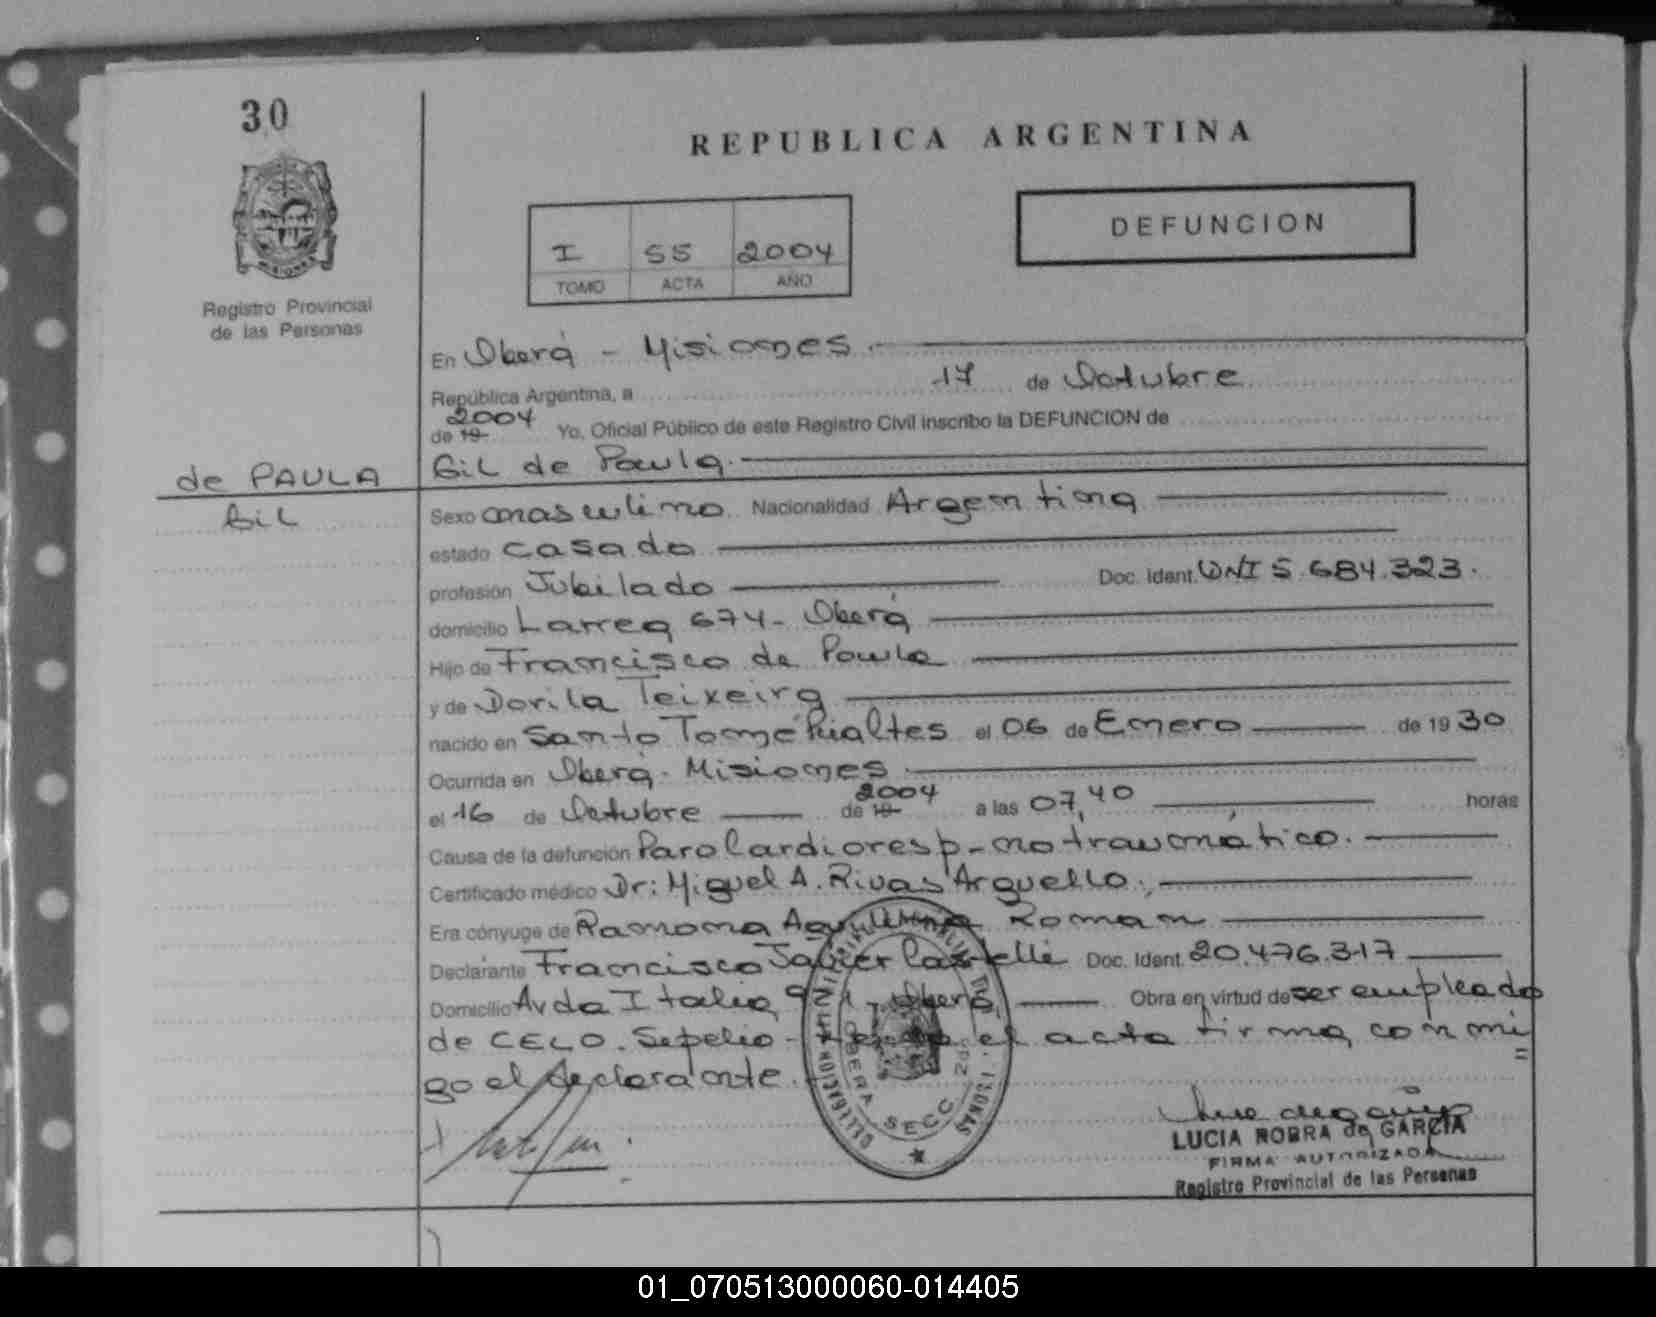 30
REPUBLICA ARGENTINA
DEFUNCION
I 55 2004
TOMO ACTA AÑO
Registro Provincial
de las Personas
En Oberá - Misiones.
República Argentina, a 17 de Octubre
2004
de 19 Yo, Oficial Público de este Registro Civil inscribo la DEFUNCION de
de PAULA
Gil
Gil de Paula.
Sexo masculino Nacionalidad Argentina
estado casado
profesión Jubilado Doc. Ident. DNI 5.684.323.
domicilio Larrea 674- Oberá
Hijo de Francisco de Paula
y de Dorila Teixeira
nacido en Santo Tomé el 06 de Enero de 1930
Ocurrida en Oberá. Misiones.
2004
el 16 de Octubre de 19 a las 07,40 horas
Causa de la defunción Paro Cardioresp-no traumático.
Certificado médico Dr: Miguel A. Rivas Arguello.
Era cónyuge de Ramona Roman
Declarante Francisco Javier Doc. Ident. 20.476.317
Domicilio Avda Italia Oberá Obra en virtud de ser empleado
de CELO. Sepelio - el acta firma con mi
=
go el declarante.
DELEGACION
OBERA SECC 2da.
LUCIA ROBRA de GARCIA
FIRMA AUTORIZADA
Registro Provincial de las Personas
01_070513000060-014405